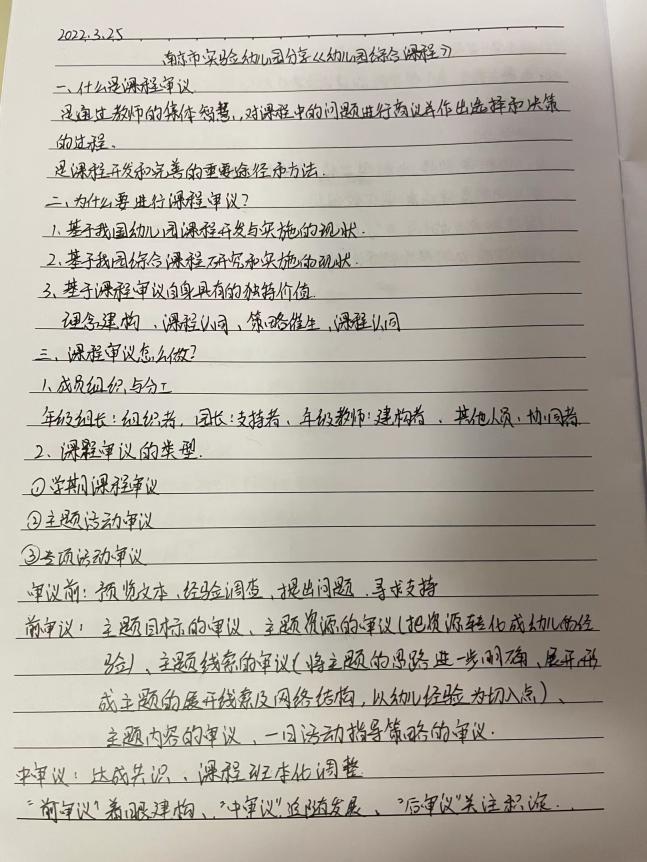 2022.3.25
南京市实验幼儿园分享《幼儿园综合课程》
一、什么是课程审议
是通过教师的集体智慧，对课程中的问题进行商议并作出选择和决策
的过程.
是课程开发和完善的重要途径和方法.
二、为什么要进行课程审议?
1.基于我国幼儿园课程开发与实施的现状.
2.基于我园综合课程研究和实施的现状.
3、基于课程审议自身具有的独特价值.
理念建构、课程认同、策略催生、课程认同
三、课程审议怎么做?
1.成员组织与分工
年级组长:组织者、园长:支持者、年级教师:建构者、其他人员:协同者
2、课程审议的类型.
①学期课程审议
②主题活动审议
③专项活动审议
审议前:预览文本、经验调查、提出问题、寻求支持
前审议:主题目标的审议、主题资源的审议(把资源转化成幼儿的经
验)、主题线索的审议(将主题的思路进一步明确、展开,形
成主题的展开线索及网络结构,以幼儿经验为切入点)、
主题内容的审议、一日活动指导策略的审议.
中审议:达成共识、课程班本化调整
"前审议"着眼建构、"中审议"追随发展、"后审议"关注积淀.